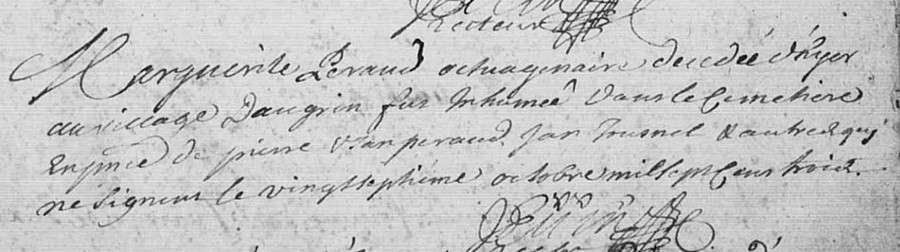 Recteur
Marguerite Peraud octuagenaire decedée d'hyer
au village Daugrin fut Inhumeé dans le Cemetiere
En pnce de pierre & Jan peraud Jan & autres qui
ne signent le vingtseptiéme octobre mil sept Cens trois.